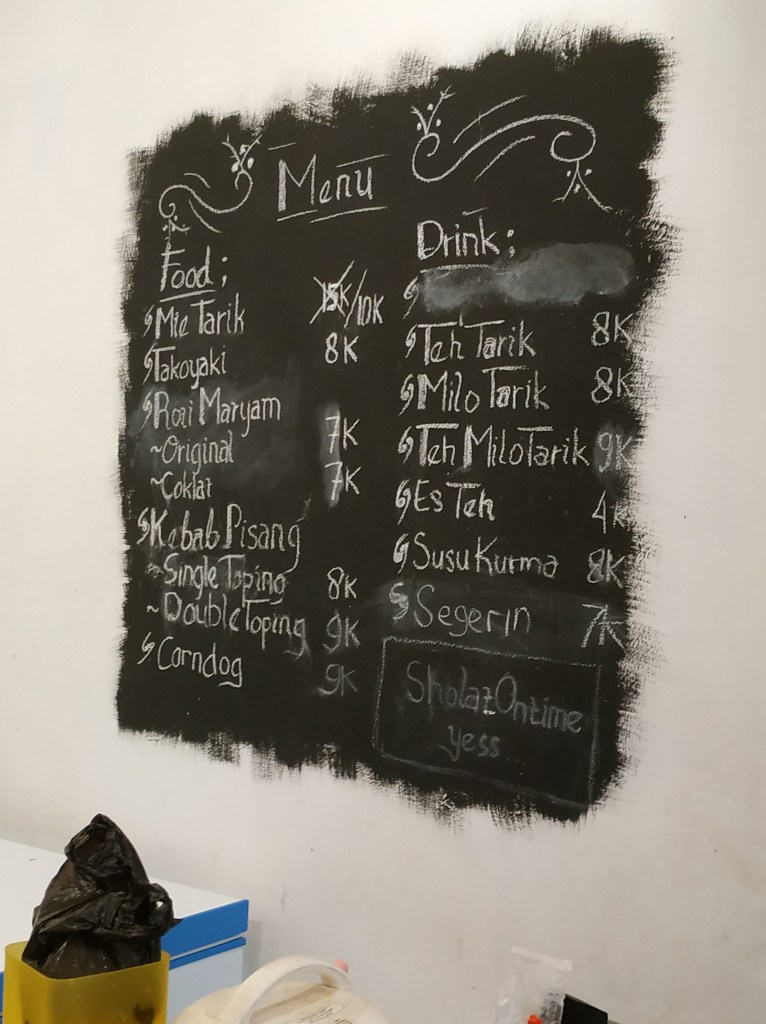 Menu
Food ;
Mie Tarik 15K/10K
Takoyaki 8K
Roti Maryam
~Original 7K
~Coklat 7K
Kebab Pisang
~Single Toping 8K
~Double Toping 9K
Corndog 9K
Drink ;
Teh Tarik 8K
Milo Tarik 8K
Teh Milo Tarik 9K
Es Teh 4K
Susu Kurma 8K
Segerin 7K
Sholat Ontime
yess